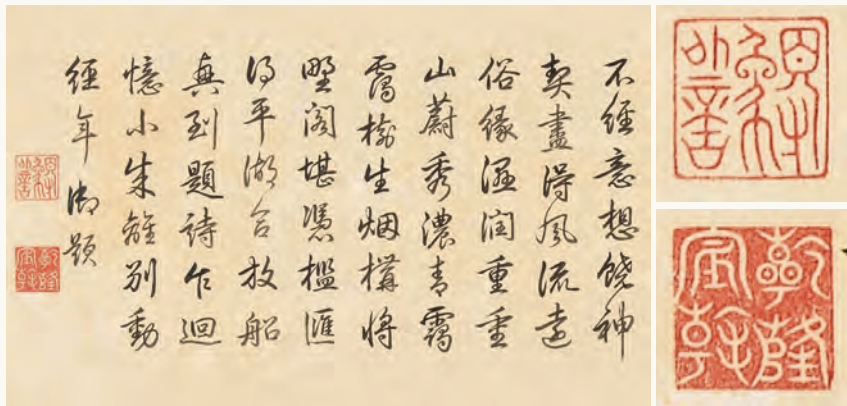 不經意想饒神
契盡得風流遠
俗緣濕潤重重
山蔚秀濃青靄
靄樹生烟構將
野閣堪憑檻匯
得平湖合放船
真到題詩乍迴
憶小離別動
經年御題
乾隆
宸翰